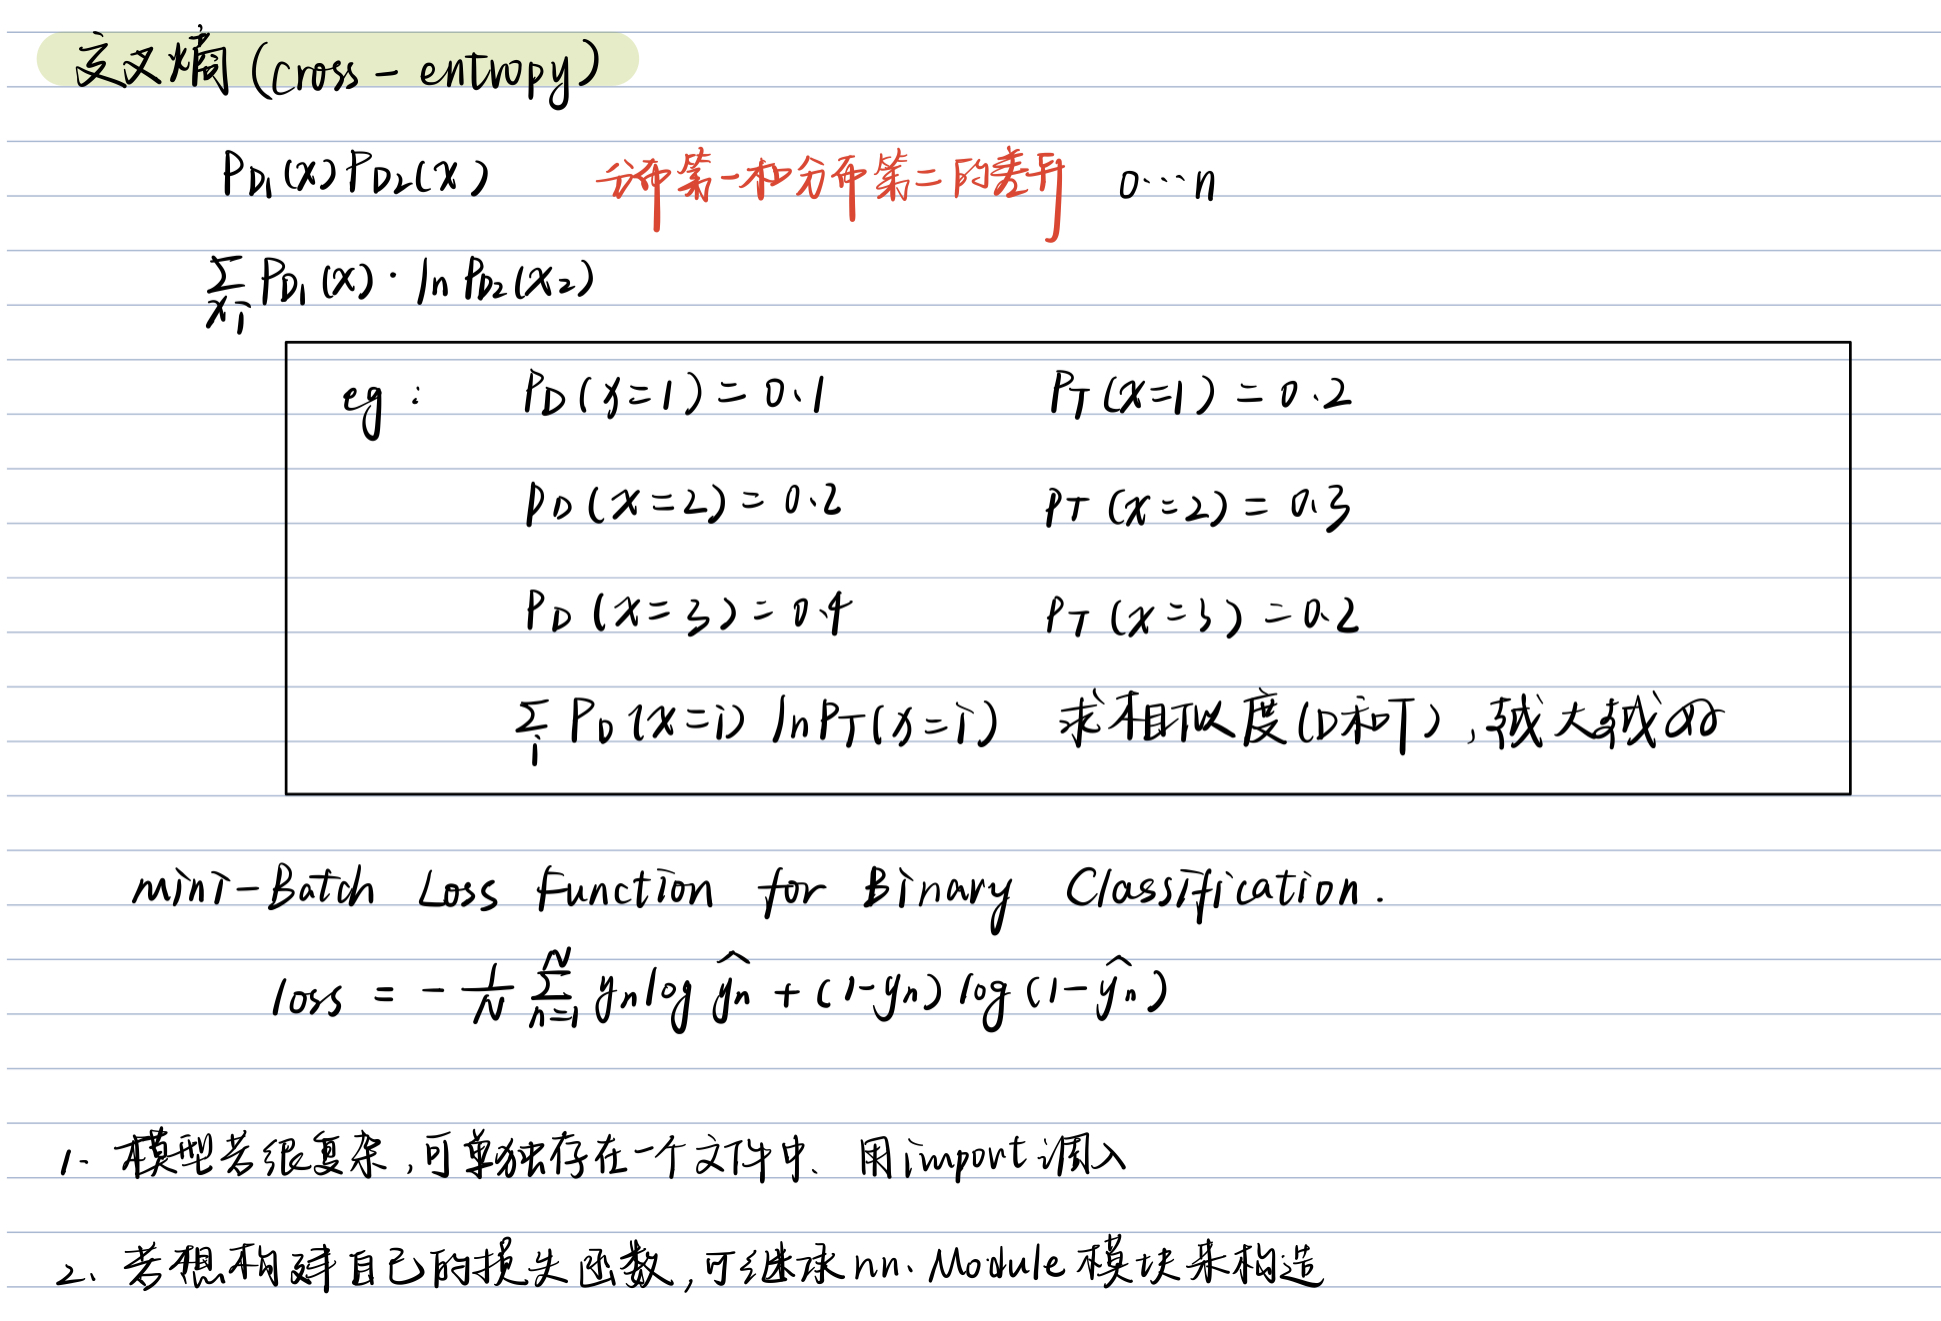 交叉熵(cross-entropy)
P_D1(x) P_D2(x) 分布第一和分布第二的差异 0…n
∑_xi P_D1(x)·ln P_D2(x2)
eg: P_D(x=1)=0.1 P_T(x=1)=0.2
P_D(x=2)=0.2 P_T(x=2)=0.3
P_D(x=3)=0.4 P_T(x=3)=0.2
∑_i P_D(x=i) ln P_T(x=i) 求相似度(D和T),越大越好
mini-Batch Loss Function for Binary Classification.
loss = -1/N ∑_{n=1}^{N} y_n log ŷ_n + (1-y_n) log(1-ŷ_n)
1、模型若很复杂,可单独存在一个文件中、用import调入
2、若想构建自己的损失函数,可继承nn.Module模块来构造